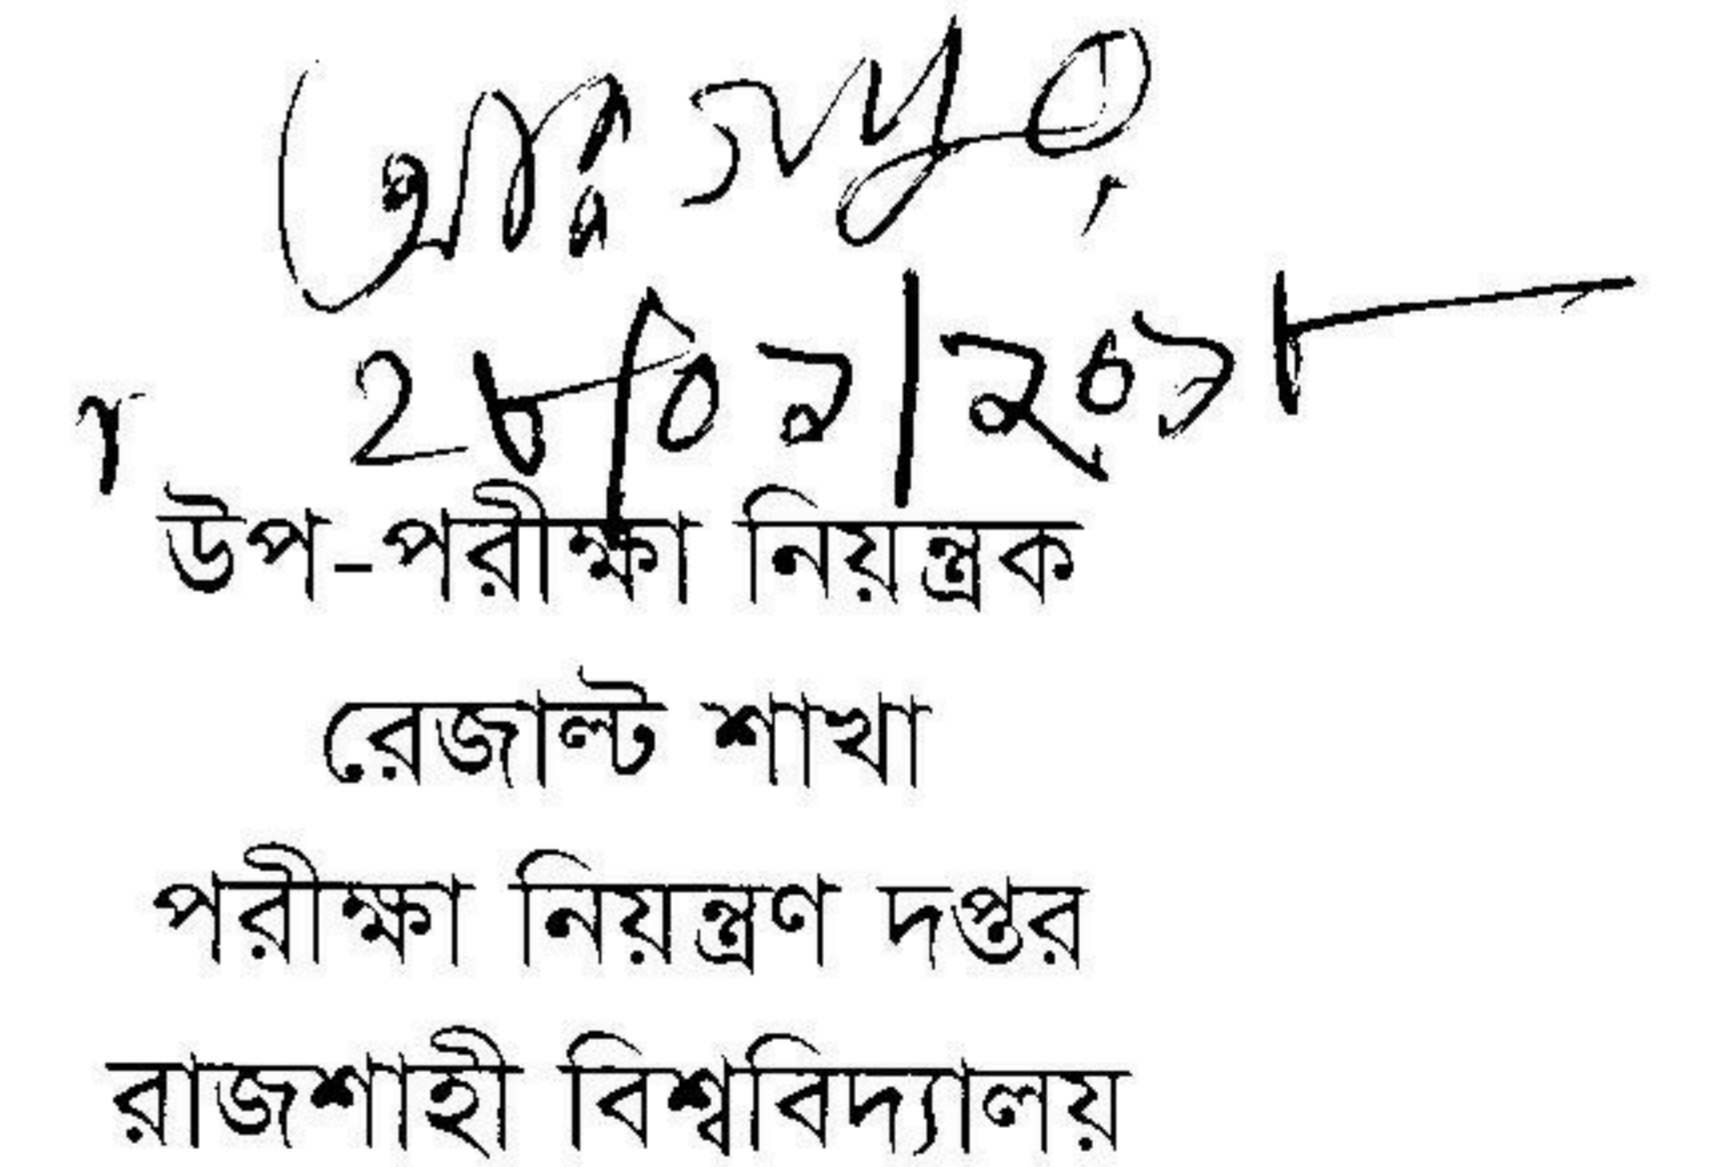 ২৮/০৯/২০১৮
উপ-পরীক্ষা নিয়ন্ত্রক
রেজাল্ট শাখা
পরীক্ষা নিয়ন্ত্রণ দপ্তর
রাজশাহী বিশ্ববিদ্যালয়